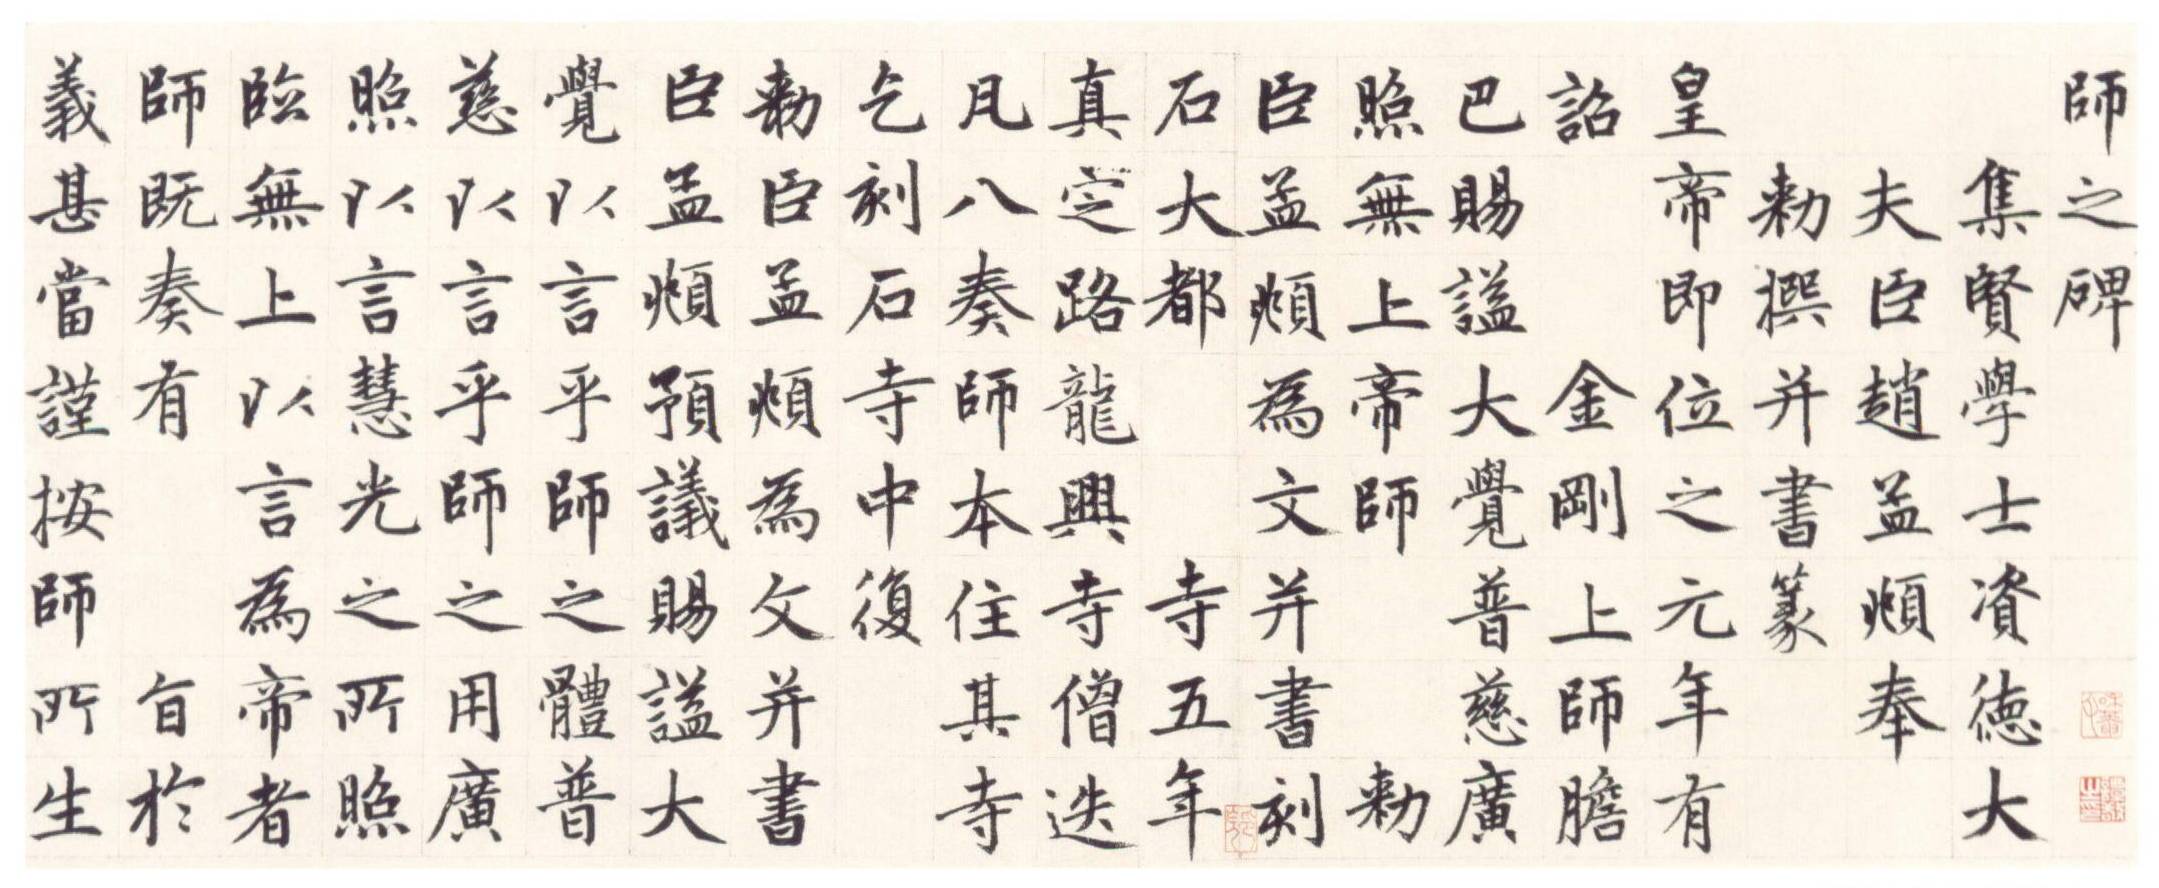 師之碑
集賢學士資德大
夫臣趙孟頫奉
勑撰并書篆
皇帝即位之元年有
詔金剛上師膽
巴賜謚大覺普慈廣
照無上帝師勑
臣孟頫為文并書刻
石大都寺五年
真定路龍興寺僧迭
凡八奏師本住其寺
乞刻石寺中復
勑臣孟頫為文并書
臣孟頫預議賜謚大
覺以言乎師之體普
慈以言乎師之用廣
照以言慧光之所照
臨無上以言為帝者
師既奏有旨於
義甚當謹按師所生